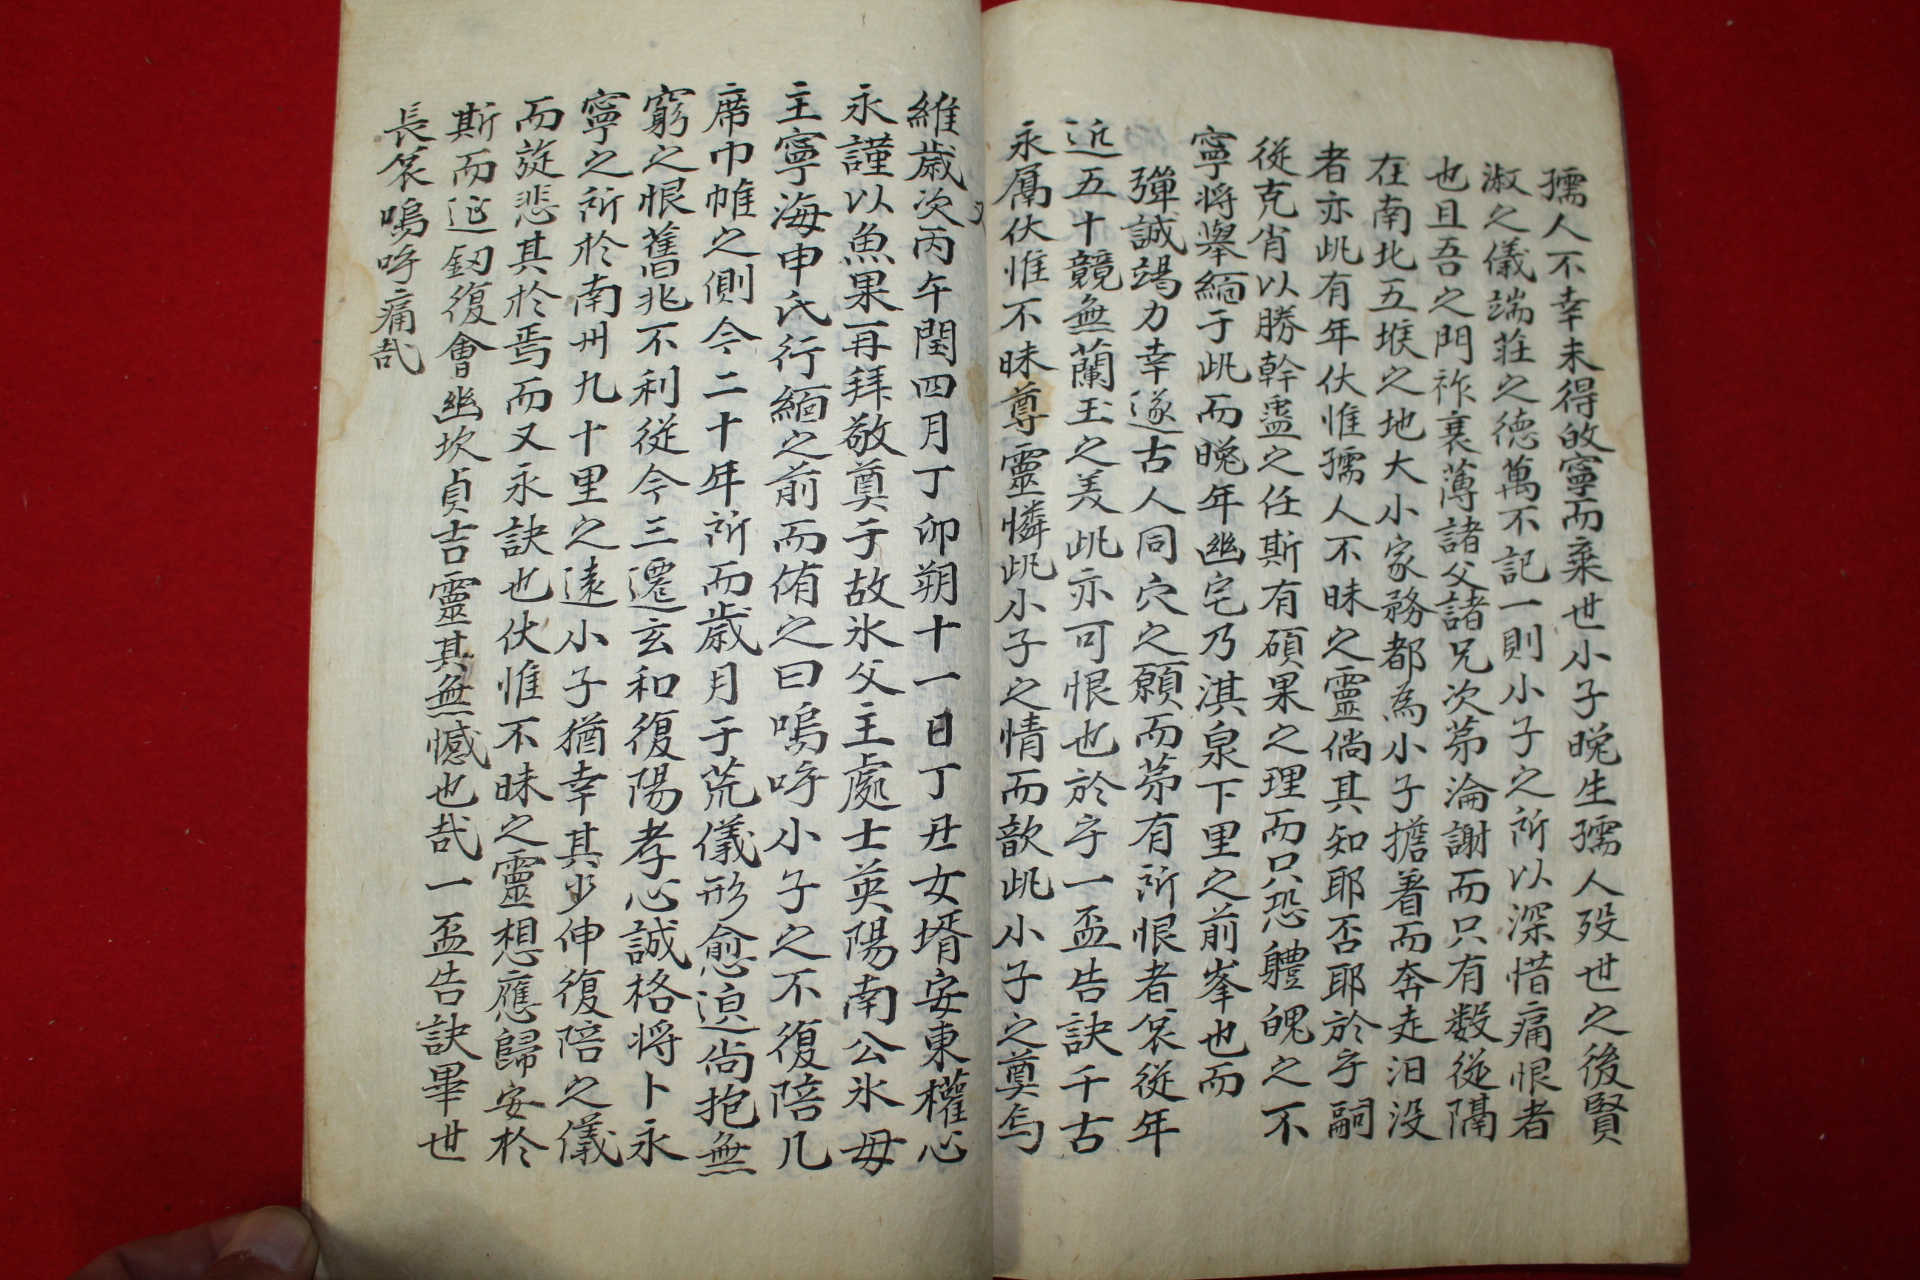 孺人不幸未得敀寧而棄世小子晩生孺人歿世之後賢
淑之儀端莊之徳萬不記一則小子之所以深惜痛恨者
也且吾之門祚衰薄諸父諸兄次苐淪謝而只有数従隔
在南北五堠之地大小家務都為小子擔着而奔走汨没
者亦此有年伏惟孺人不昧之靈倘其知耶否耶於乎嗣
従克肖以勝幹蠱之任斯有碩果之理而只恐軆魄之不
寧将擧緬于此而晩年幽宅乃淇泉下里之前峯也而
殫誠竭力幸遂古人同穴之願而苐有所恨者哀従年
近五十竟無蘭玉之美此亦可恨也於乎一盃告訣千古
永属伏惟不昧尊靈憐此小子之情而歆此小子之奠焉
又
維歳次丙午閏四月丁卯朔十一日丁丑女壻安東權心
永謹以魚果再拜敬奠于故氷父主處士英陽南公氷母
主寧海申氏行緬之前而侑之曰嗚呼小子之不復陪几
席巾帷之側今二十年所而歳月于荒儀形愈𨓏尚抱無
窮之恨舊兆不利従今三遷玄和復陽孝心誠格将卜永
寧之所於南州九十里之遠小子猶幸其少伸復陪之儀
而旋悲其於焉而又永訣也伏惟不昧之靈想應歸安於
斯而延釼復會幽坎貞吉靈其無憾也哉一盃告訣畢世
長哀嗚呼痛哉